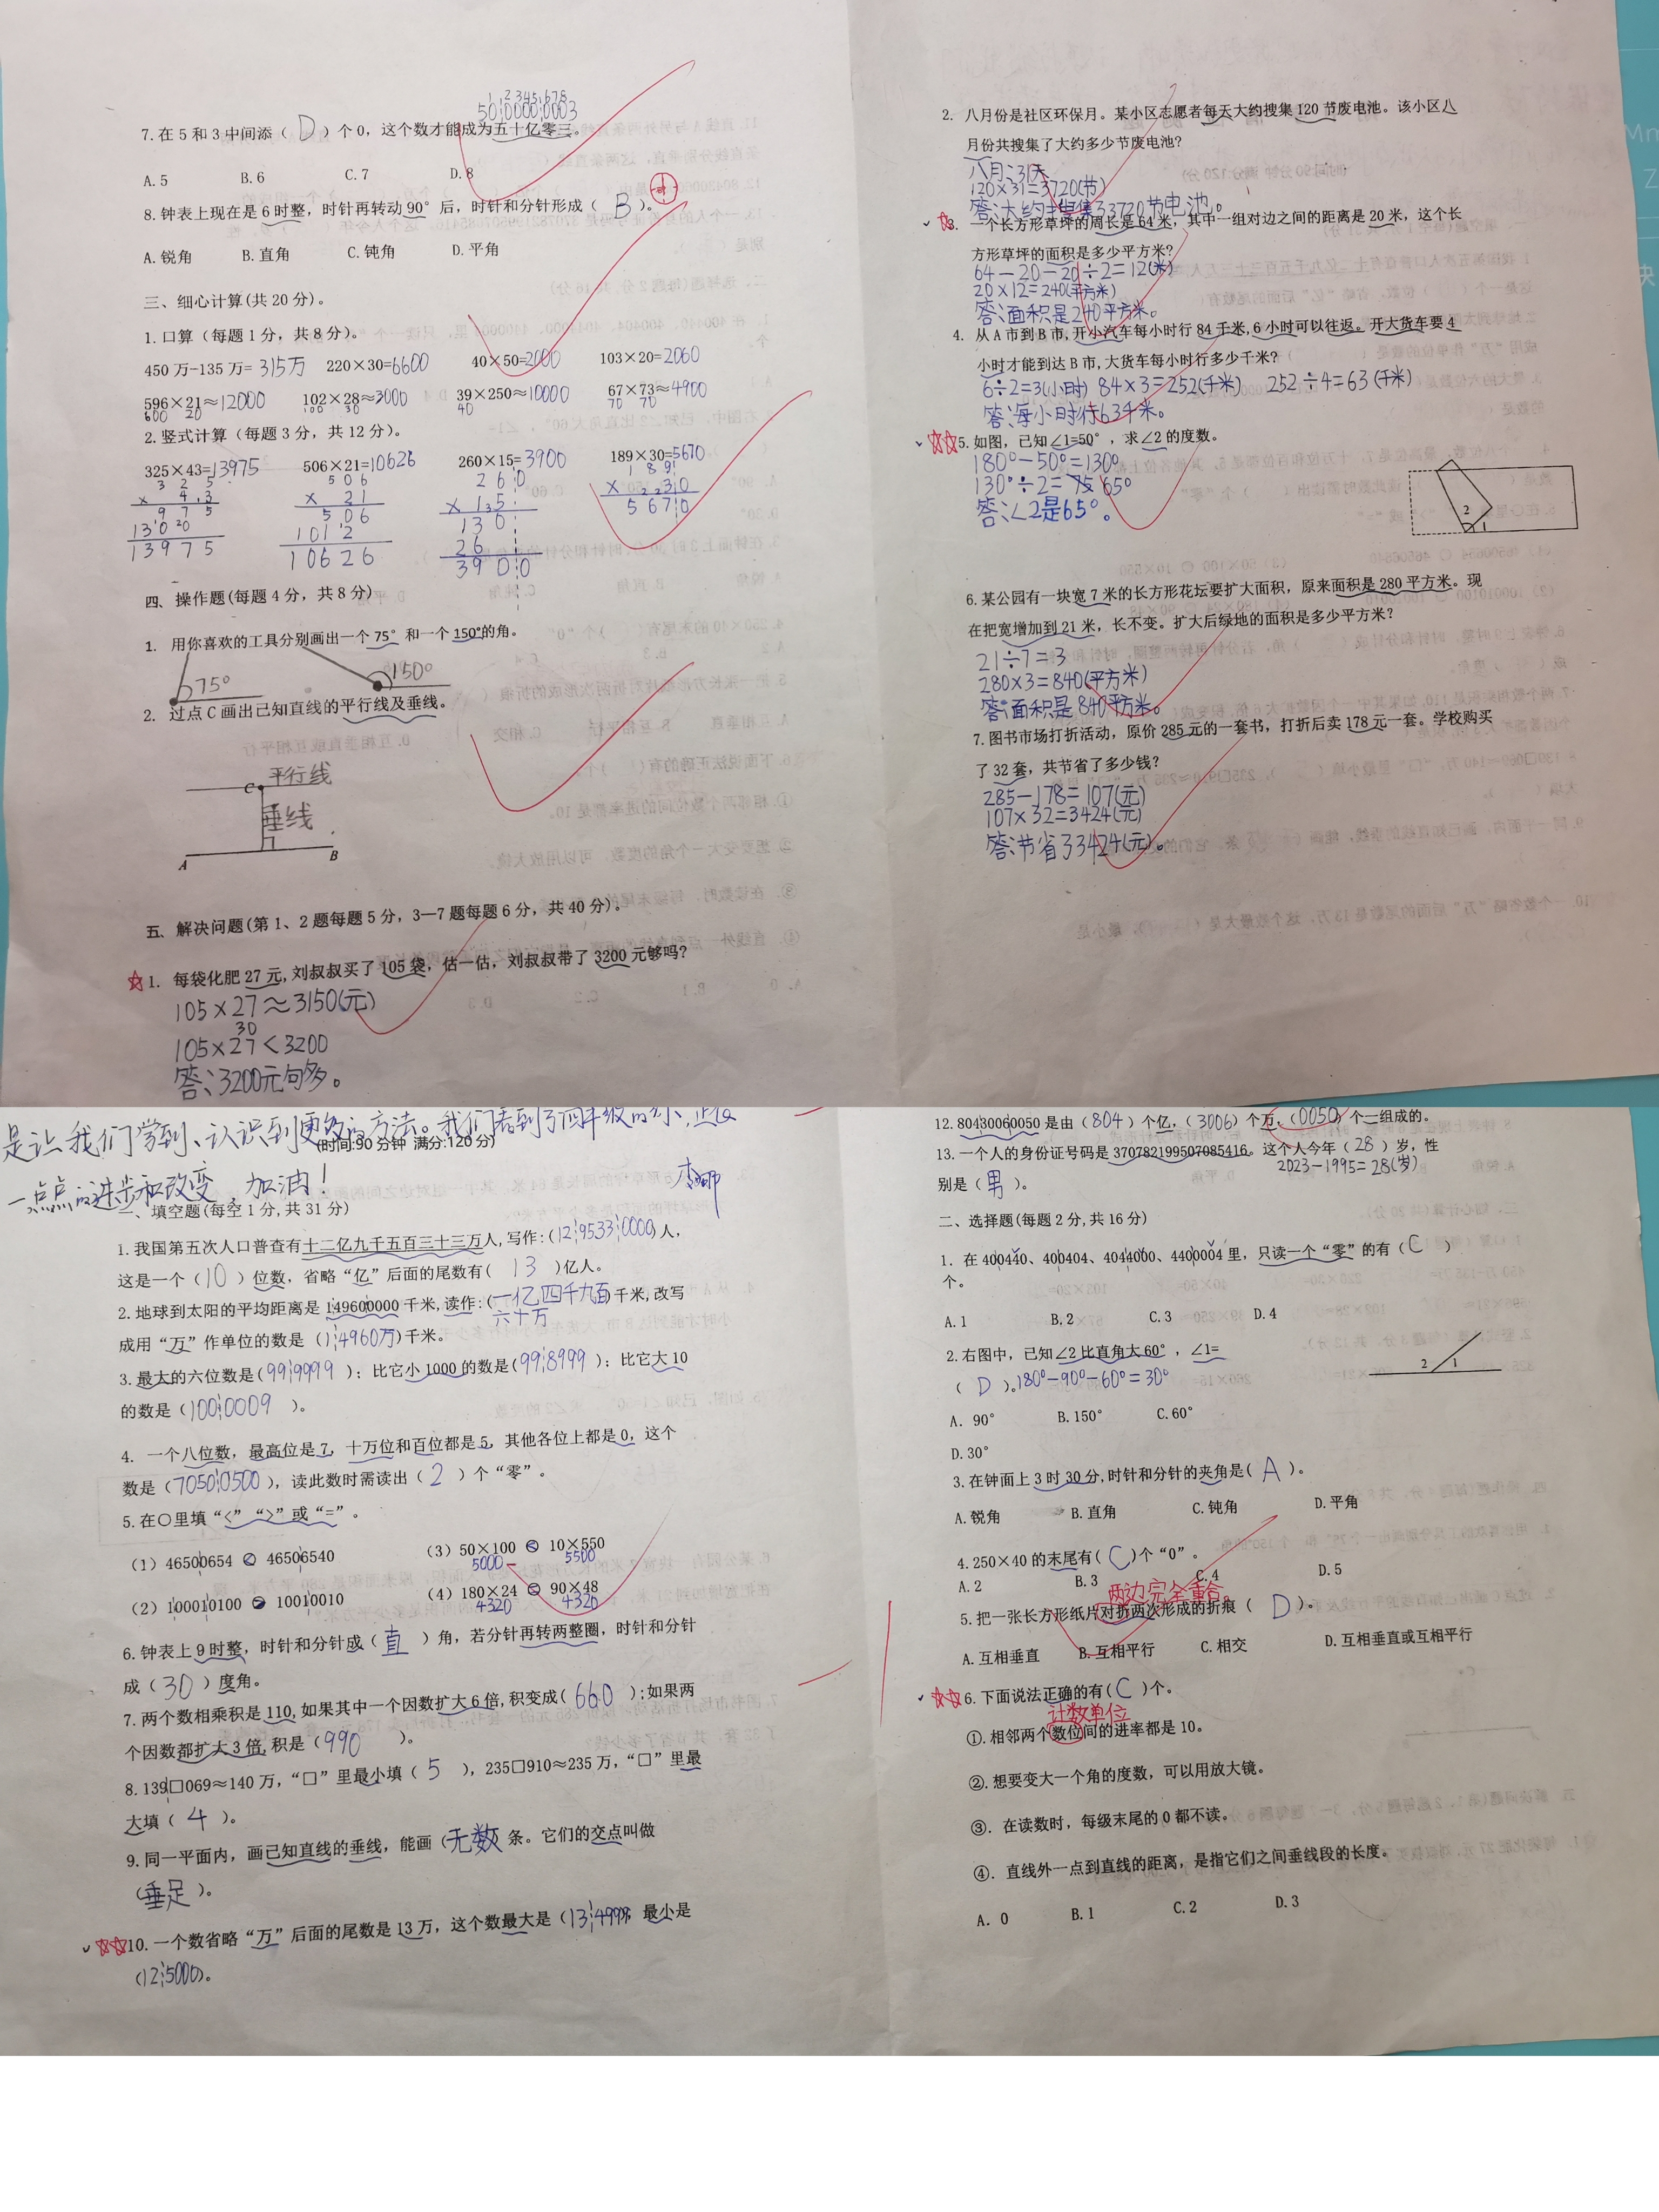 1 2345 678
50¦0000¦0003
7.在5和3中间添( D )个0，这个数才能成为五十亿零三。
A.5 B.6 C.7 D.8
8.钟表上现在是6时整，时针再转动90°后，时针和分针形成( B )。
A.锐角 B.直角 C.钝角 D.平角
三、细心计算(共20分)。
1.口算（每题1分，共8分）。
450万-135万=315万 220×30=6600 40×50=2000 103×20=2060
596×21≈12000 102×28≈3000 39×250≈10000 67×73≈4900
600 20 100 30 40 70 70
2.竖式计算（每题3分，共12分）。
325×43=13975 506×21=10626 260×15=3900 189×30=5670
3 2 5 5 0 6 2 6 0 1 8 9
× 4 3 × 2 1 × 1 5 × 3 0
9 7 5 5 0 6 1 3 0 5 6 7 0
1 3 0 0 1 0 1 2 2 6
1 3 9 7 5 1 0 6 2 6 3 9 0 0
四、操作题(每题4分，共8分)
1. 用你喜欢的工具分别画出一个75°和一个150°的角。
75° 150°
2. 过点C画出已知直线的平行线及垂线。
平行线
C
垂线
A B
五、解决问题(第1、2题每题5分，3—7题每题6分，共40分)。
1. 每袋化肥27元,刘叔叔买了105袋，估一估，刘叔叔带了3200元够吗？
105×27≈3150(元)
30
105×27<3200
答:3200元句多。
2. 八月份是社区环保月。某小区志愿者每天大约搜集120节废电池。该小区八
月份共搜集了大约多少节废电池？
八月:31天
120×31=3720(节)
答:大约搜集了3720节电池。
3. 一个长方形草坪的周长是64米，其中一组对边之间的距离是20米，这个长
方形草坪的面积是多少平方米？
64-20-20÷2=12(米)
20×12=240(平方米)
答:面积是240平方米。
4. 从A市到B市,开小汽车每小时行84千米,6小时可以往返。开大货车要4
小时才能到达B市,大货车每小时行多少千米？
6÷2=3(小时) 84×3=252(千米) 252÷4=63(千米)
答:每小时行63千米。
5.如图，已知∠1=50°，求∠2的度数。
180°-50°=130°
130°÷2=65°
答:∠2是65°。
2
1
6.某公园有一块宽7米的长方形花坛要扩大面积，原来面积是280平方米。现
在把宽增加到21米，长不变。扩大后绿地的面积是多少平方米？
21÷7=3
280×3=840(平方米)
答:面积是840平方米。
7.图书市场打折活动，原价285元的一套书，打折后卖178元一套。学校购买
了32套，共节省了多少钱？
285-178=107(元)
107×32=3424(元)
答:节省了3424(元)。
是让我们学到、认识到更多的方法。我们看到了四年级的小
(时间:90分钟 满分:120分)
一点点的进步和改变，加油！
李娜
一、填空题(每空1分,共31分)
1.我国第五次人口普查有十二亿九千五百三十三万人,写作:(12¦9533¦0000)人，
这是一个（10）位数，省略“亿”后面的尾数有( 13 )亿人。
2.地球到太阳的平均距离是149600000千米,读作:(一亿四千九百
六十万)千米,改写
成用“万”作单位的数是（1¦4960万)千米。
3.最大的六位数是(99¦9999 )；比它小1000的数是(99¦8999 )；比它大10
的数是(100¦0009 )。
4. 一个八位数，最高位是7，十万位和百位都是5，其他各位上都是0，这个
数是(7050¦0500)，读此数时需读出( 2 )个“零”。
5.在○里填“<”“>”或“=”。
（1）46500654 < 46506540 （3）50×100 < 10×550
5000 5500
（2）100010100 > 10010010 （4）180×24 = 90×48
4320 4320
6.钟表上9时整，时针和分针成( 直 )角，若分针再转两整圈，时针和分针
成( 30 )度角。
7.两个数相乘积是110,如果其中一个因数扩大6倍,积变成( 660 );如果两
个因数都扩大3倍,积是(990 )。
8.139□069≈140万，“□”里最小填( 5 )，235□910≈235万，“□”里最
大填( 4 )。
9.同一平面内，画已知直线的垂线，能画(无数)条。它们的交点叫做
(垂足)。
10.一个数省略“万”后面的尾数是13万，这个数最大是(13¦4999)，最小是
(12¦5000)。
12.80430060050是由(804)个亿，(3006)个万，(0050)个一组成的。
13.一个人的身份证号码是370782199507085416。这个人今年( 28 )岁，性
2023-1995=28(岁)
别是( 男 )。
二、选择题(每题2分,共16分)
1. 在400440、400404、4044000、4400004里，只读一个“零”的有( C )
个。
A.1 B.2 C.3 D.4
2.右图中，已知∠2比直角大60°，∠1=
( D )。180°-90°-60°=30°
2 1
A. 90° B.150° C.60°
D.30°
3.在钟面上3时30分,时针和分针的夹角是( A )。
A.锐角 B.直角 C.钝角 D.平角
4.250×40的末尾有( C )个“0”。
A.2 B.3 C.4 D.5
两边完全重合
5.把一张长方形纸片对折两次形成的折痕( D )。
A.互相垂直 B.互相平行 C.相交 D.互相垂直或互相平行
6.下面说法正确的有( C )个。
计数单位
①.相邻两个数位间的进率都是10。
②.想要变大一个角的度数，可以用放大镜。
③. 在读数时，每级末尾的0都不读。
④. 直线外一点到直线的距离，是指它们之间垂线段的长度。
A. 0 B.1 C.2 D.3